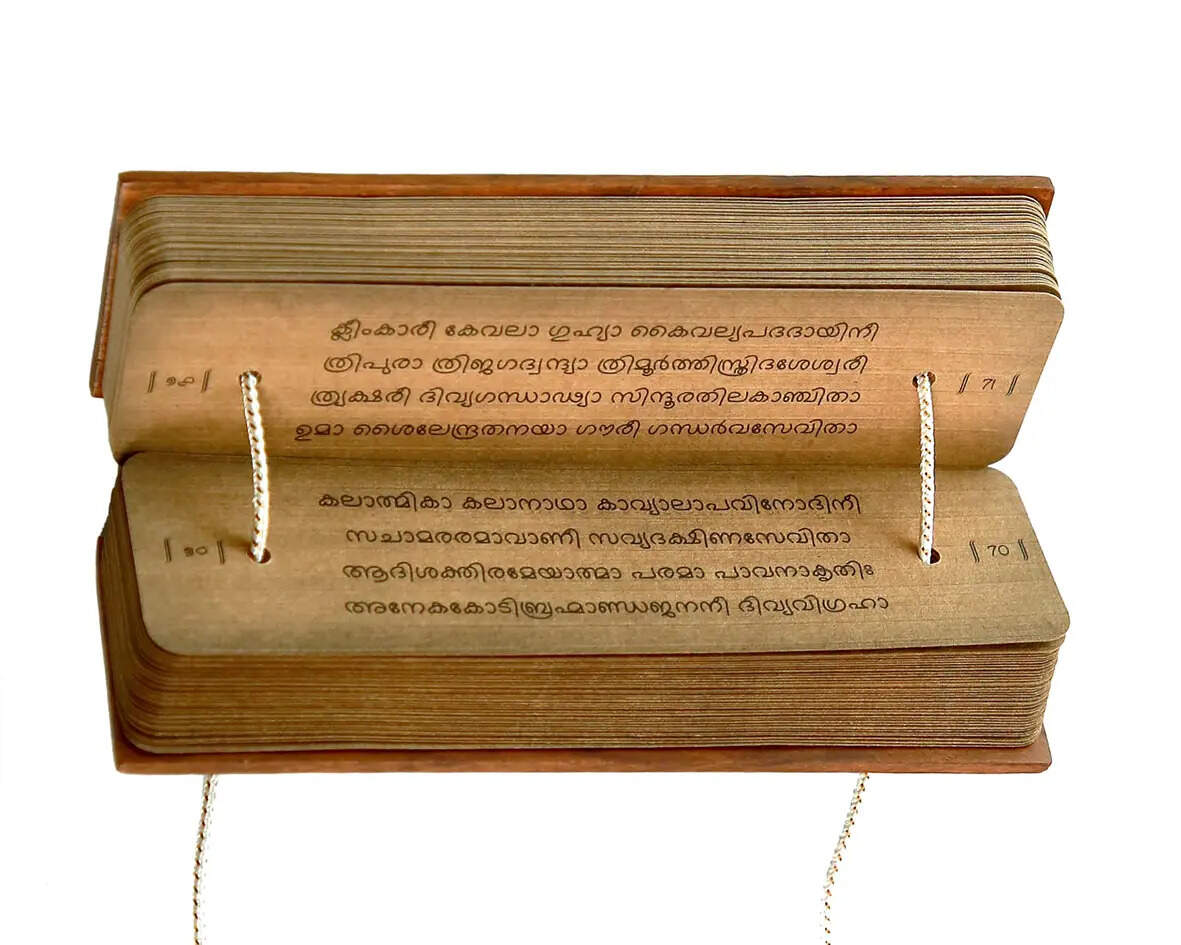 ക്ലീംകാരീ കേവലാ ഗുഹ്യാ കൈവല്യപദദായിനീ
ത്രിപുരാ ത്രിജഗദ്വന്ദ്യാ ത്രിമൂർത്തിസ്ത്രിദശേശ്വരീ
൭൧ 71
ത്ര്യക്ഷരീ ദിവ്യഗന്ധാഢ്യാ സിന്ദൂരതിലകാഞ്ചിതാ
ഉമാ ശൈലേന്ദ്രതനയാ ഗൗരീ ഗന്ധർവസേവിതാ
കലാത്മികാ കലാനാഥാ കാവ്യാലാപവിനോദിനീ
സചാമരരമാവാണീ സവ്യദക്ഷിണസേവിതാ
൭൦ 70
ആദിശക്തിരമേയാത്മാ പരമാ പാവനാകൃതിഃ
അനേകകോടിബ്രഹ്മാണ്ഡജനനീ ദിവ്യവിഗ്രഹാ